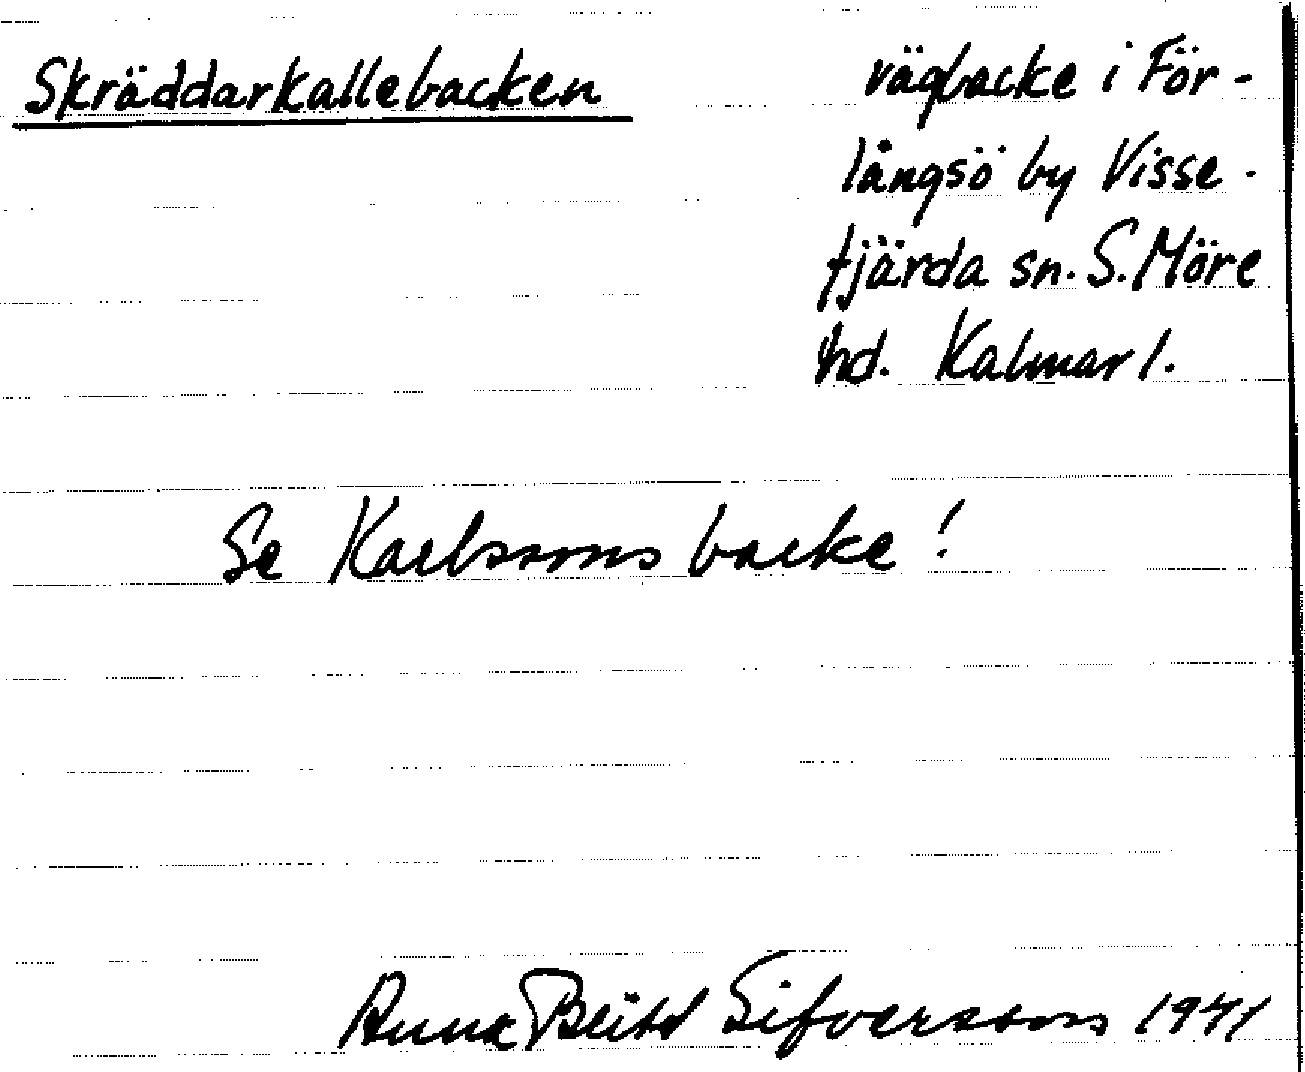 Skräddarkallebacken
vägbacke i För-
långsö by Visse-
fjärda sn. S. Möre
hd. Kalmar l.
Se Karlssons backe!
Anna Sifversson 1941